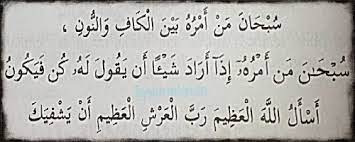 سُبْحَانَ مَنْ أَمْرُهُ بَيْنَ الْكَافِ وَالنُّونِ ،
سُبْحَـٰنَ مَن أَمْرُهُۥٓ إِذَآ أَرَادَ شَيْـًٔا أَن يَقُولَ لَهُۥ كُن فَيَكُونُ
أَسْأَلُ اللَّهَ الْعَظِيمَ رَبَّ الْعَرْشِ الْعَظِيمِ أَنْ يَشْفِيَكَ